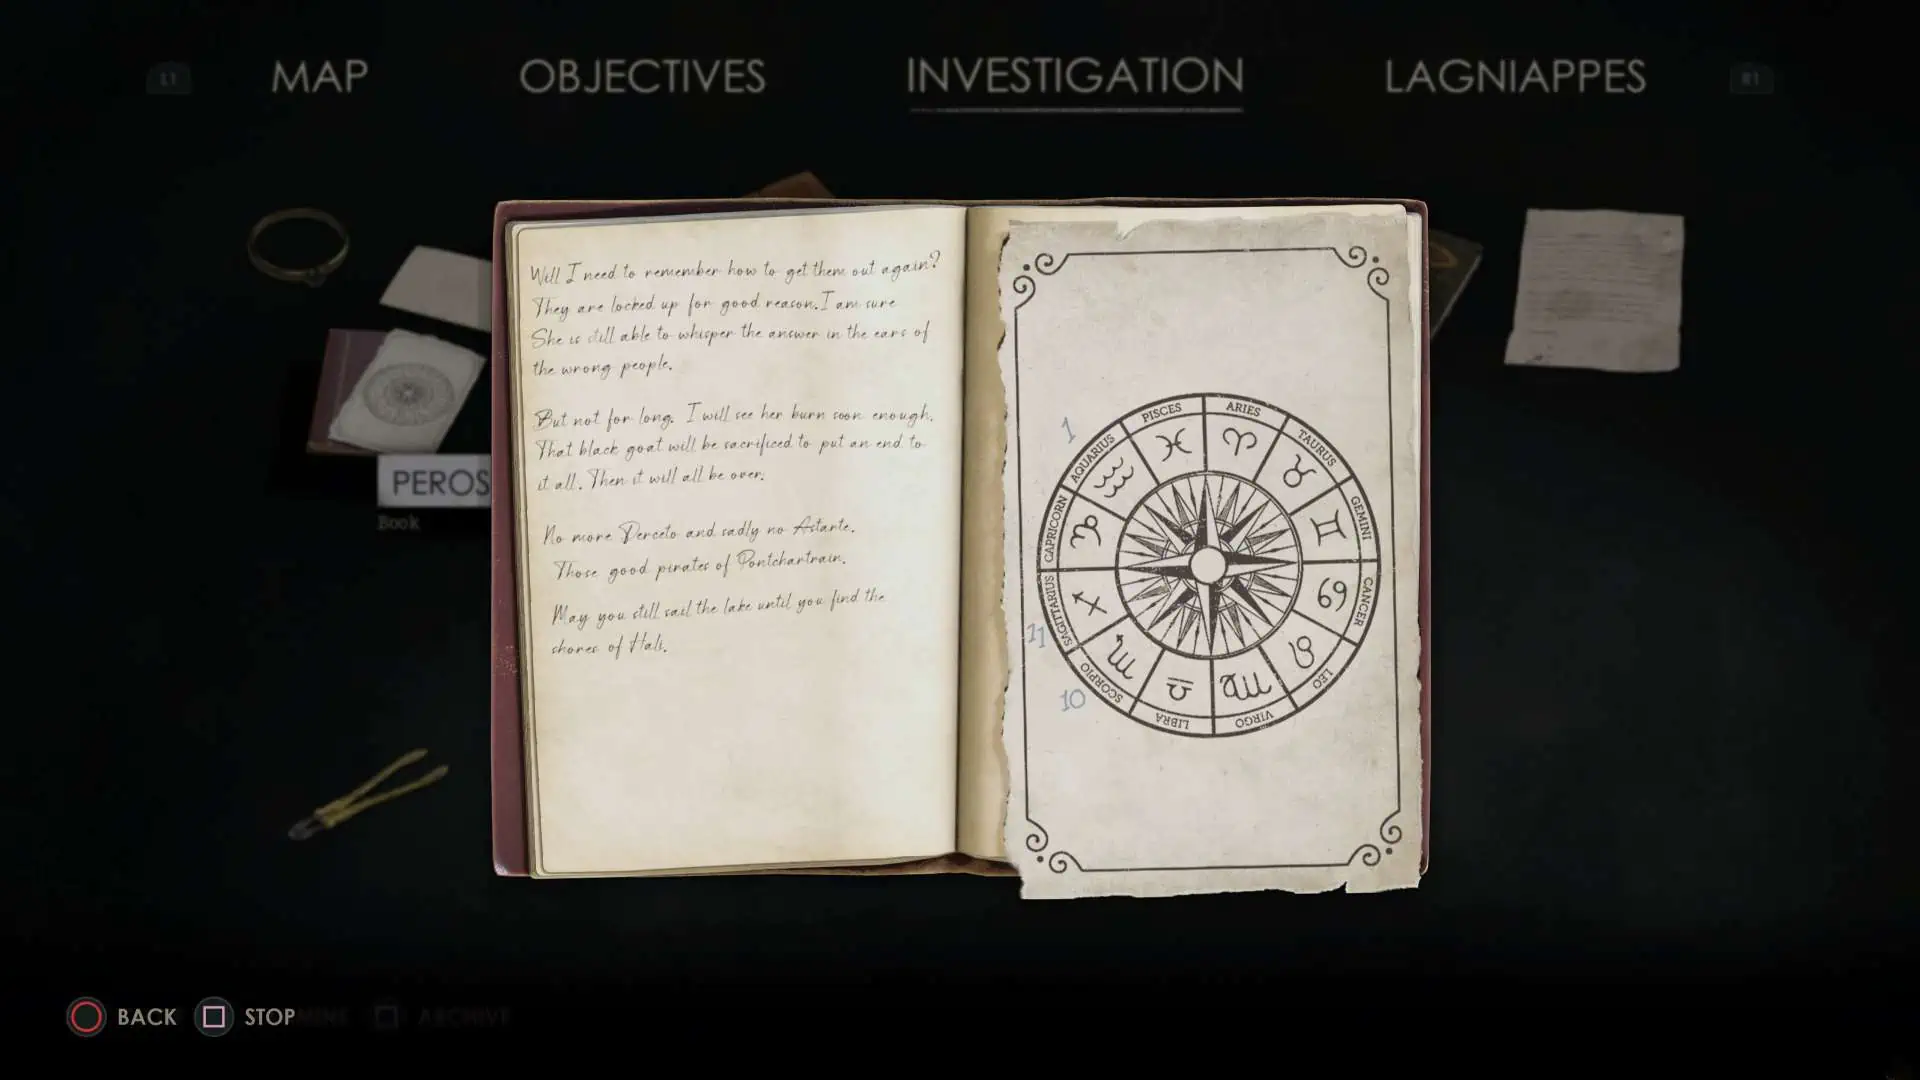 L1
MAP
OBJECTIVES
INVESTIGATION
LAGNIAPPES
R1
Will I need to remember how to get them out again?
They are locked up for good reason. I am sure
She is still able to whisper the answer in the ears of
the wrong people.
But not for long. I will see her burn soon enough.
That black goat will be sacrificed to put an end to
it all. Then it will all be over.
No more Derceto and sadly no Astarte.
Those good pirates of Pontchartrain.
May you still sail the lake until you find the
shores of Hali.
PEROS
Book
1
11
10
PISCES
ARIES
TAURUS
GEMINI
CANCER
LEO
VIRGO
LIBRA
SCORPIO
SAGITTARIUS
CAPRICORN
AQUARIUS
BACK
STOP
ARCHIVE